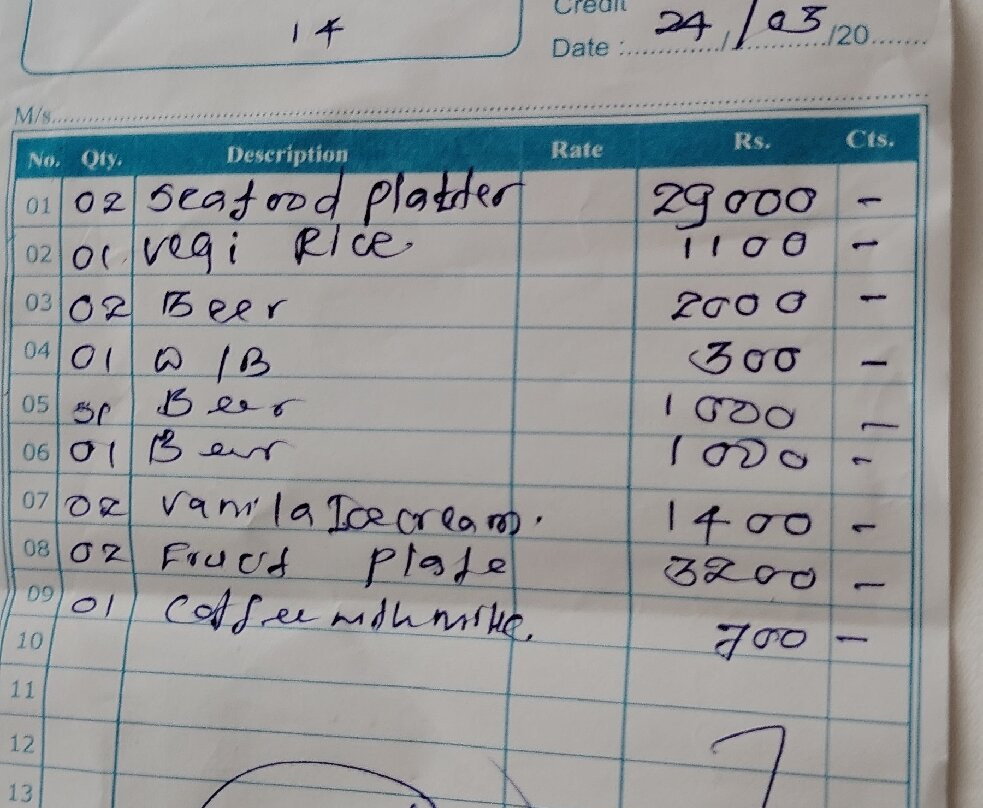 14
Credit
Date : 24/03/20
M/s
No. Qty. Description Rate Rs. Cts.
01 02 Seafood Platter 29000 -
02 01 vegi Rice 1100 -
03 02 Beer 2000 -
04 01 W/B 300 -
05 Beer 1000 -
06 01 Beer 1000 -
07 02 Vanila Icecream. 1400 -
08 02 Plate 3200 -
09 01 Coffee 700 -
10
11
12
13